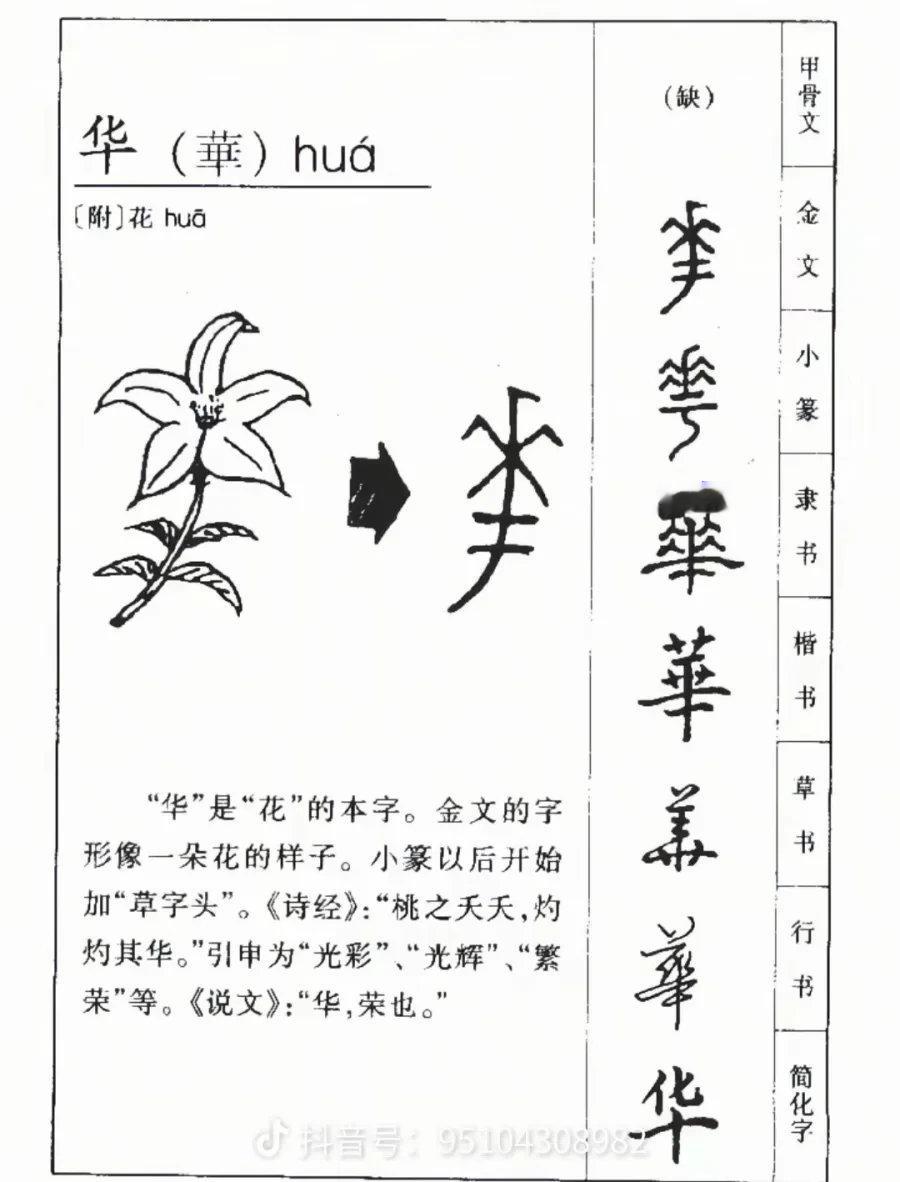 华（華）huá
〔附〕花 huā
“华”是“花”的本字。金文的字
形像一朵花的样子。小篆以后开始
加“草字头”。《诗经》：“桃之夭夭，灼
灼其华。”引申为“光彩”、“光辉”、“繁
荣”等。《说文》：“华，荣也。”
（缺）
甲骨文
金文
小篆
隶书
華
楷书
草书
華
行书
华
简化字
抖音号：95104308982